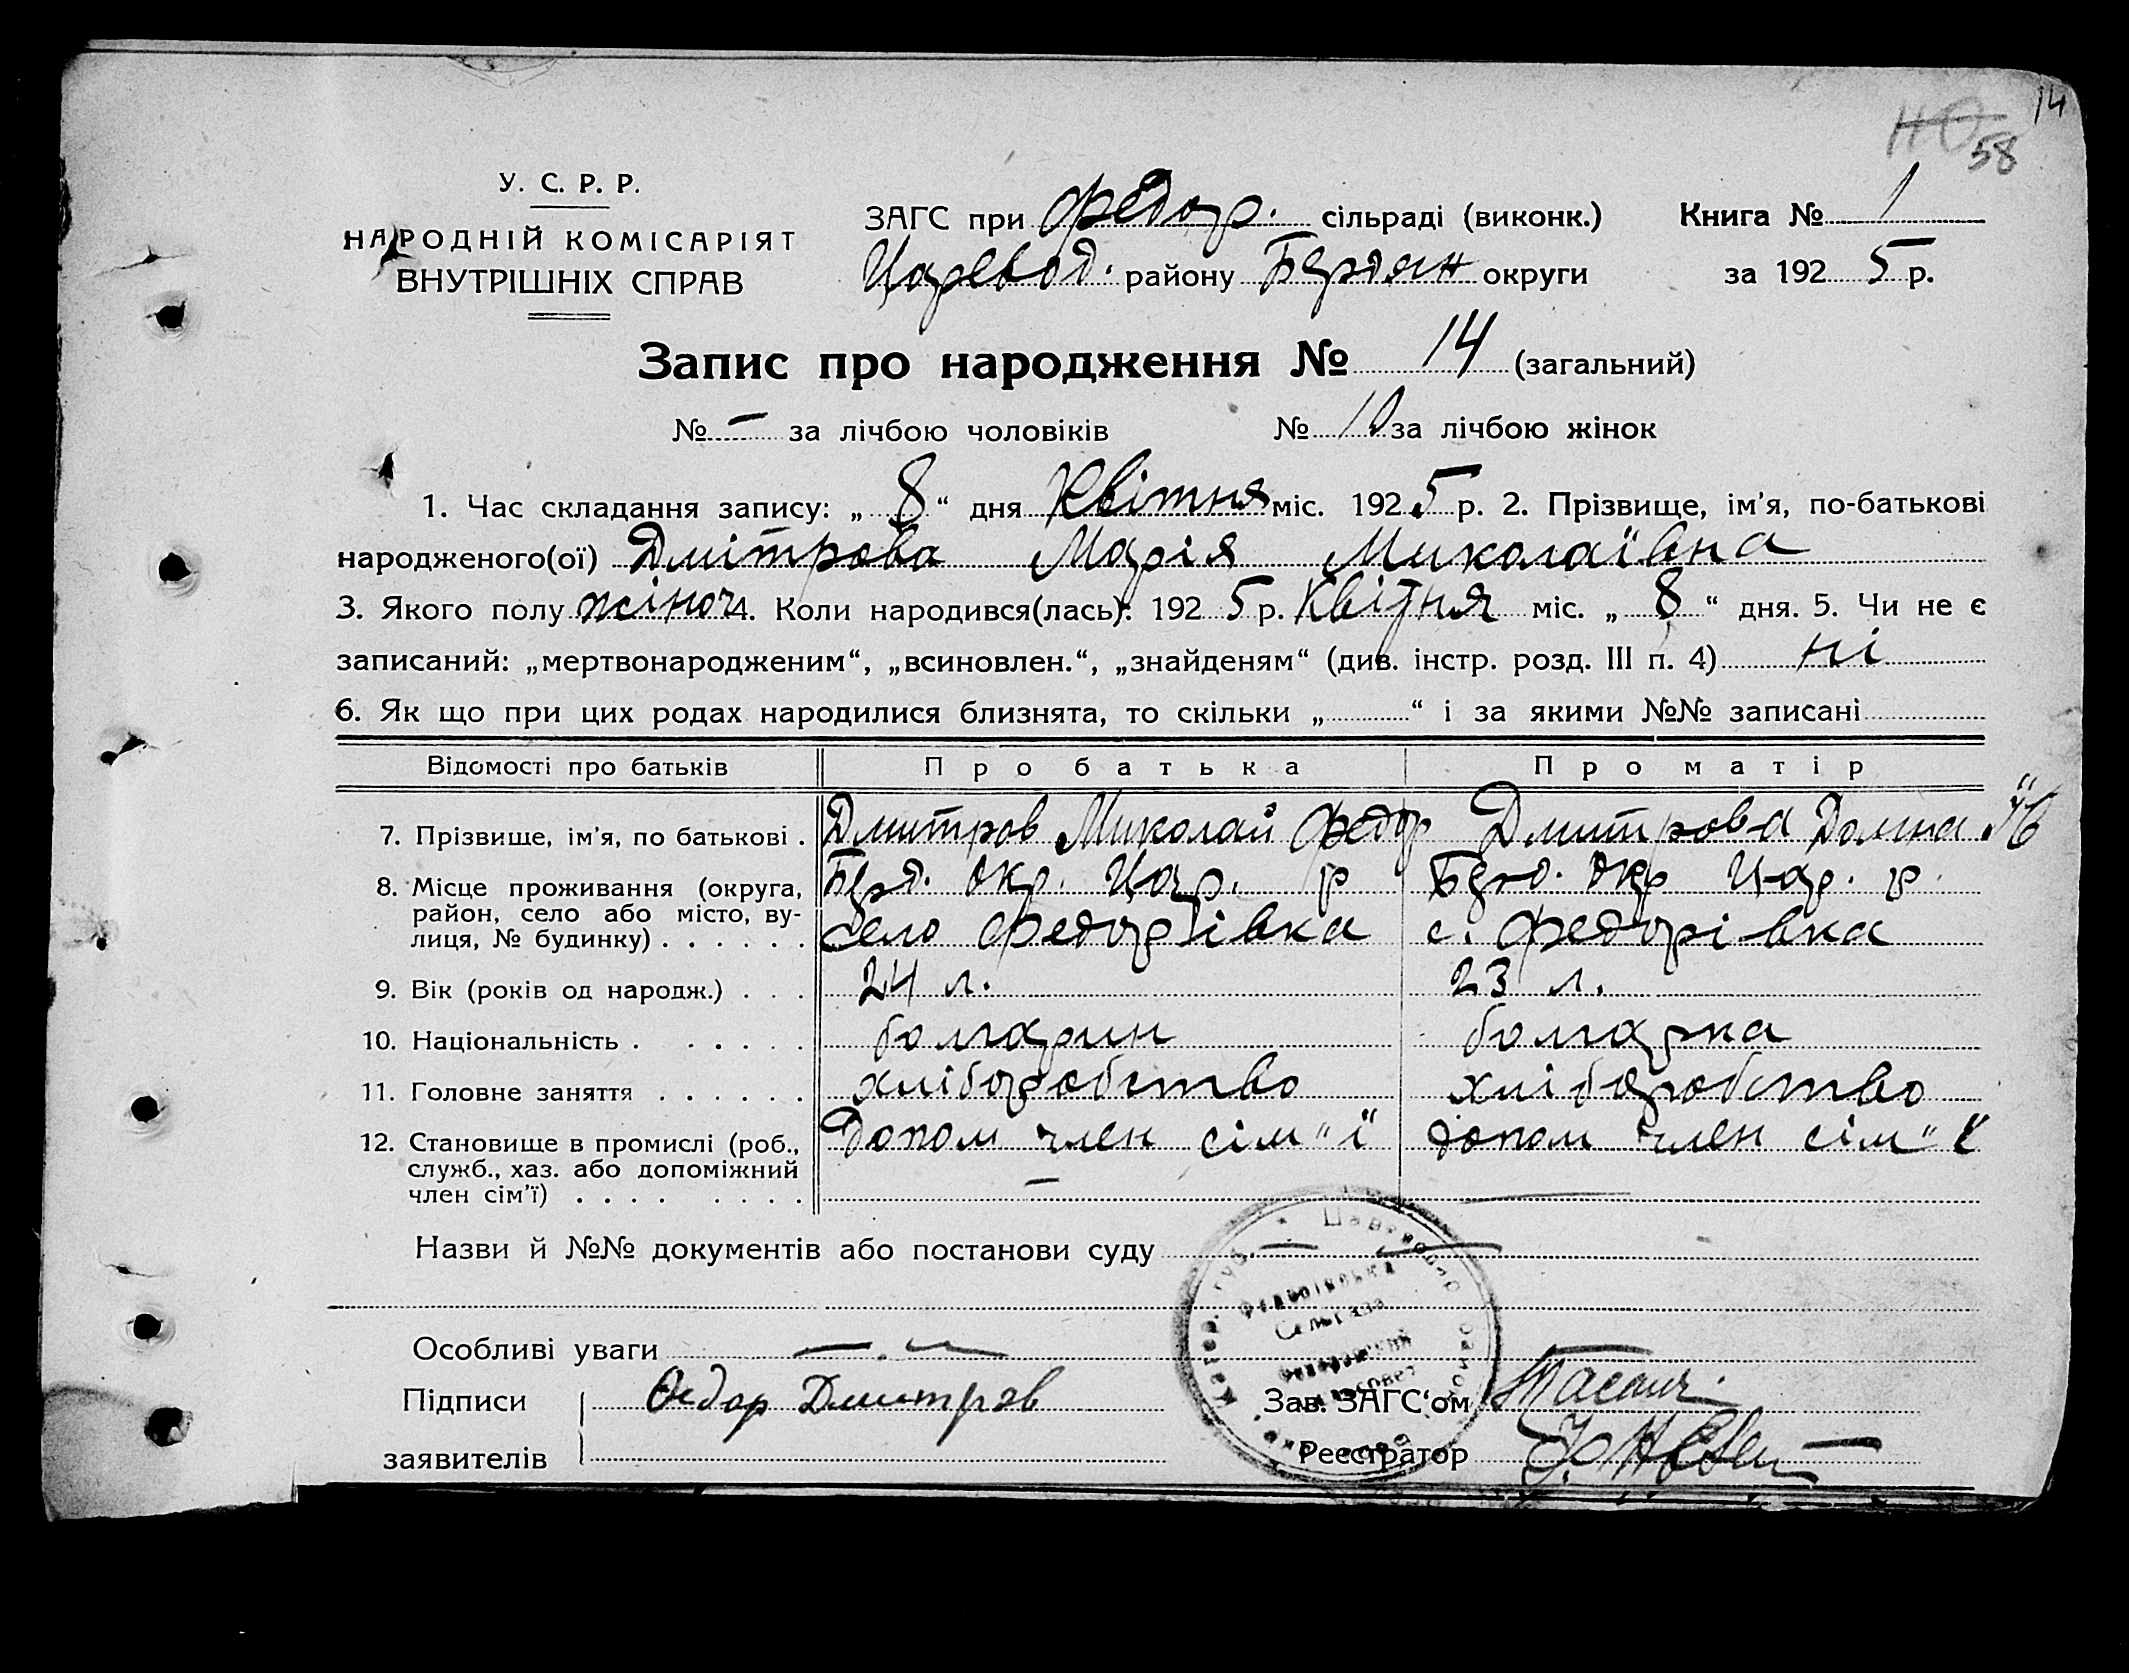 14
58
У. С. Р. Р.
НАРОДНІЙ КОМІСАРІЯТ
ВНУТРІШНІХ СПРАВ
ЗАГС при Федор. сільраді (виконк.) Книга № 1
Царевод. району Бердян округи за 1925 р.
Запис про народження № 14 (загальний)
№ – за лічбою чоловіків № 10 за лічбою жінок
1. Час складання запису: „8“ дня Квітня міс. 1925 р. 2. Прізвище, ім'я, по-батькові
народженого(ої) Дмітрова Марія Миколаївна
3. Якого полу жіноч 4. Коли народився(лась): 1925 р. Квітня міс. „8“ дня. 5. Чи не є
записаний: „мертвонародженим“, „всиновлен.“, „знайденям“ (див. інстр. розд. III п. 4) ні
6. Як що при цих родах народилися близнята, то скільки „ “ і за якими №№ записані
Відомості про батьків Про батька Про матір
7. Прізвище, ім'я, по батькові . Дмитров Миколай Федор Дмитрова Домна
8. Місце проживання (округа, Берд. окр. Цар. р Берд. окр Цар. р.
район, село або місто, ву-
лиця, № будинку) . . . . . . село Федорівка с. Федорівка
9. Вік (років од народж.) . . . 24 л. 23 л.
10. Національність . . . . . . болгарин болгарка
11. Головне заняття . . . . . . хліборобство хліборобство
12. Становище в промислі (роб., допом член сім"ї допом член сім"ї
служб., хаз. або допоміжний
член сім'ї) . . . . . . . . –
Назви й №№ документів або постанови суду
Особливі уваги
Підписи Федор Дмитров Зав. ЗАГС'ом
заявителів Реєстратор